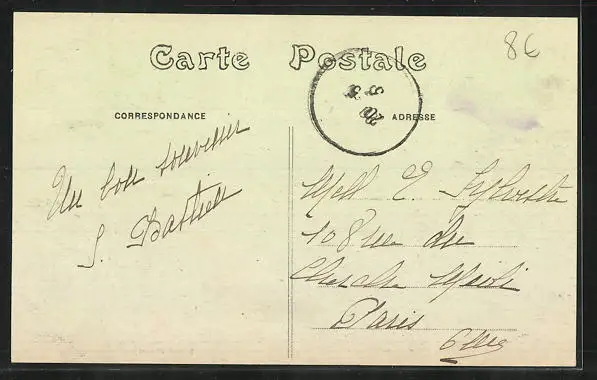 Carte Postale
86
CORRESPONDANCE
ADRESSE
Un bon souvenir
S. Bastien
Mell E. Sylvestre
108 rue du
Cherche Midi
Paris
6me